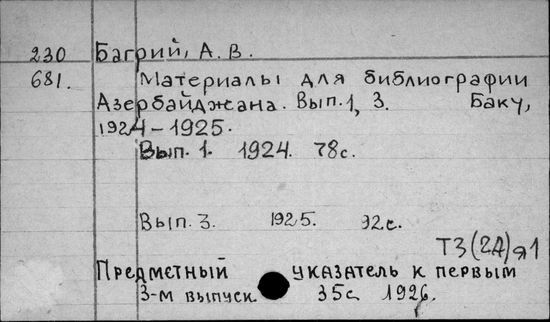 230 Багрий, А. В.
681. Материалы для библиографии
Азербайджана. Вып. 1, 3. Баку,
1924-1925.
Вып. 1. 1924. 78с.
Вып. 3. 1925. 92с.
Т3(2А)я1
Предметный указатель к первым
3-м выпуск. 35с. 1926.